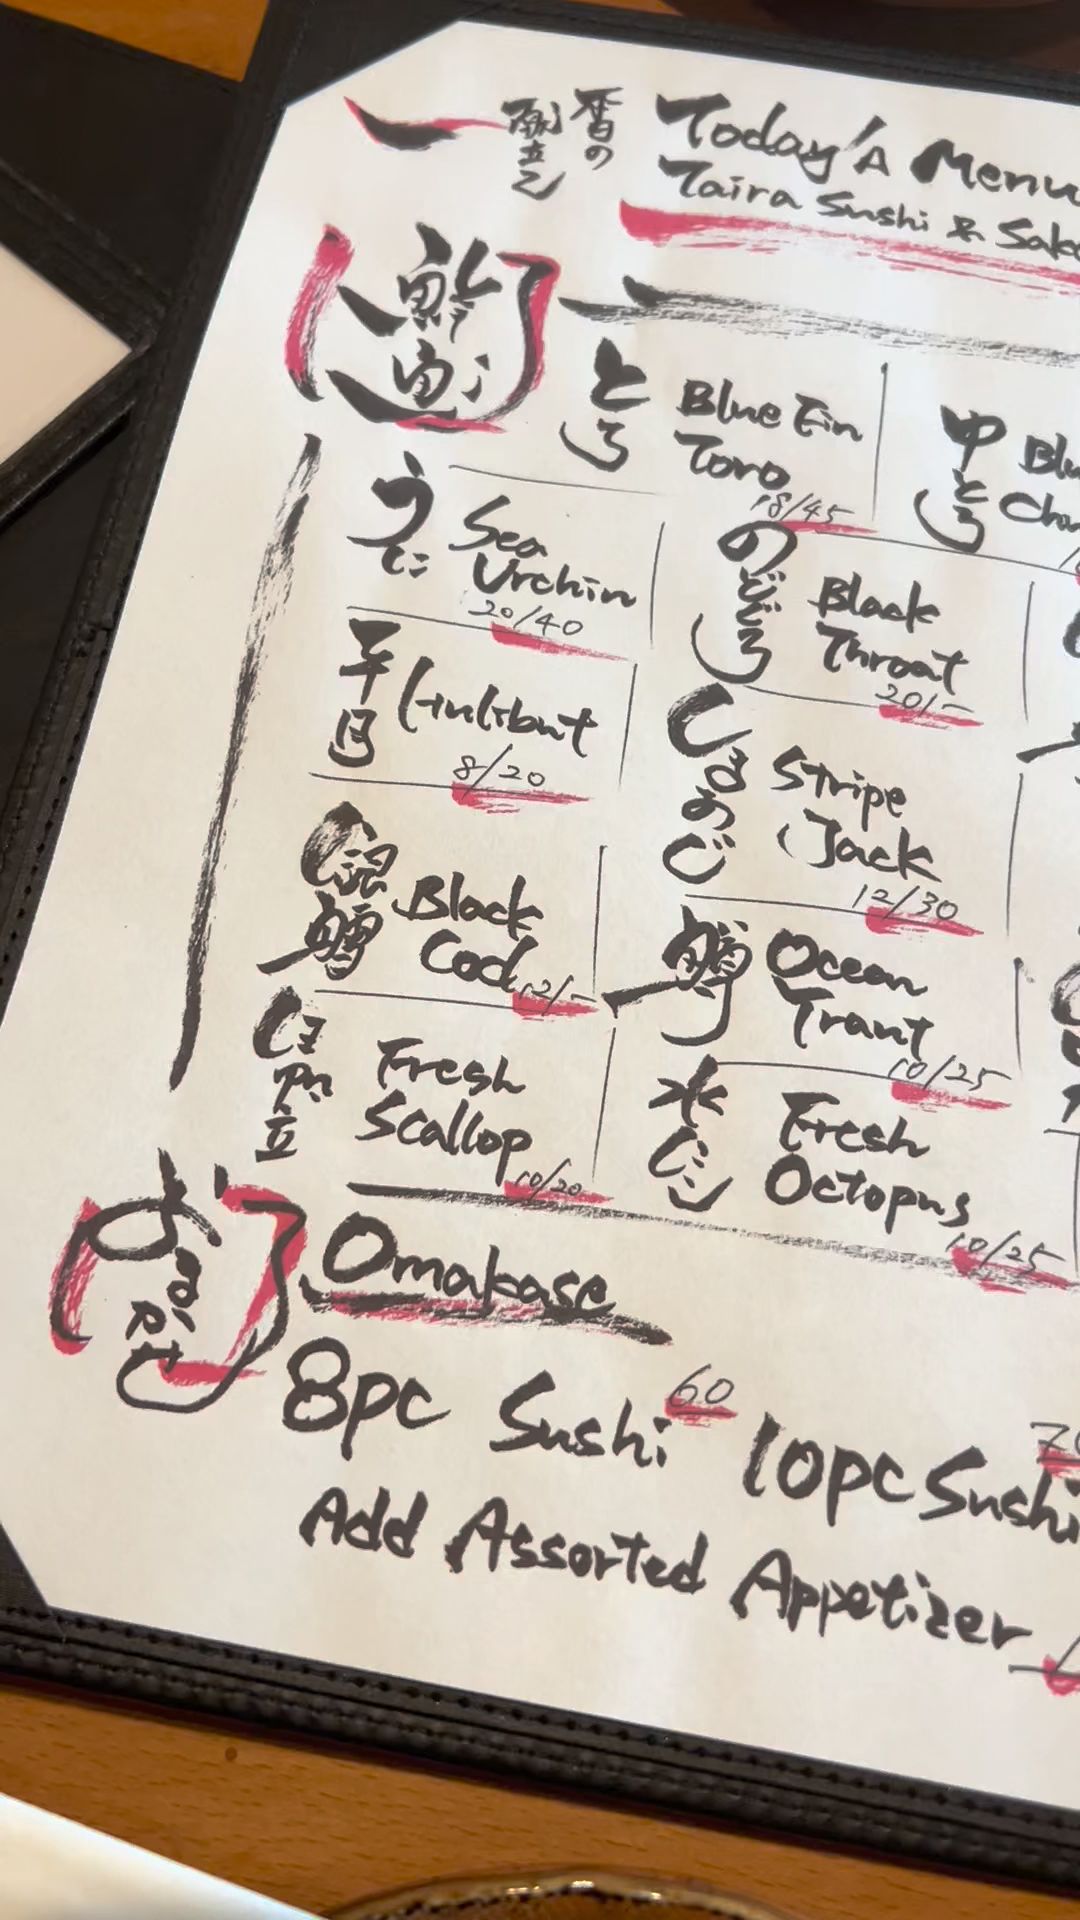 春の
献立て
Today's Menu
Taira Sushi & Sake
とろ
Blue Fin
Toro
18/45
中とろ
うに
Sea
Urchin
20/40
のどぐろ
Black
Throat
20/-
平目
Halibut
8/20
しまあじ
Stripe
Jack
12/30
銀鱈
Black
Cod
12/-
鱒
Ocean
Trout
10/25
ほたて
Fresh
Scallop
10/20
水だこ
Fresh
Octopus
10/25
おまかせ
Omakase
8pc Sushi 60
10pc Sushi
Add Assorted Appetizer